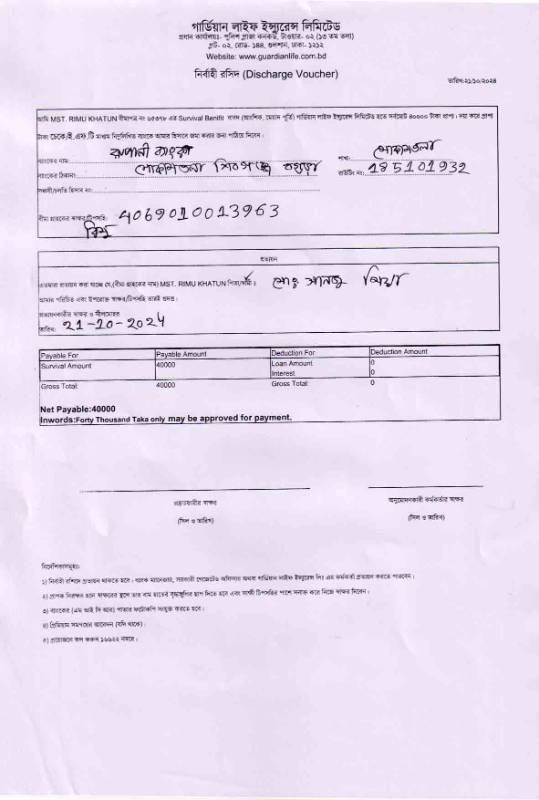 গার্ডিয়ান লাইফ ইন্স্যুরেন্স লিমিটেড
প্রধান কার্যালয়ঃ- পুলিশ প্লাজা কনকর্ড, টাওয়ার- ০২ (১৩ তম তলা)
প্লট- ০২, রোড- ১৪৪, গুলশান, ঢাকা- ১২১২
Website: www.guardianlife.com.bd
নির্বাহী রসিদ (Discharge Voucher)
তারিখ:২১/১০/২০২৪
আমি MST. RIMU KHATUN বীমাপত্র নং এর Survival Benifit বাবদ (আংশিক, মেয়াদ পূর্তি) গার্ডিয়ান লাইফ ইন্স্যুরেন্স লিমিটেড হতে সর্বমোট ৪০০০০ টাকা প্রাপ্য। দয়া করে প্রাপ্য
টাকা চেকে/ই.এফ.টি মাধ্যম নিম্নলিখিত ব্যাংকে আমার হিসাবে জমা করার জন্য পাঠিয়ে দিবেন।
ব্যাংকের নাম: রূপালী ব্যাংক শাখা: মোকামতলা
ব্যাংকের ঠিকানা: মোকামতলা শিবগঞ্জ বগুড়া রাউটিং নং: 185101932
সঞ্চয়ী/চলতি হিসাব নং:
বীমা গ্রাহকের স্বাক্ষর/টিপসহি: 4069010013963
রিমু
প্রত্যয়ন
এতদ্বারা প্রত্যয়ন করা যাচ্ছে যে,(বীমা গ্রাহকের নাম) MST. RIMU KHATUN পিতা/স্বামী ঃ মোঃ মিয়া
আমার পরিচিত এবং উপরোক্ত স্বাক্ষর/টিপসহি তারই প্রদত্ত।
প্রত্যয়নকারীর স্বাক্ষর ও সীলমোহর
তারিখ: 21-10-2024
Payable For Payable Amount Deduction For Deduction Amount
Survival Amount 40000 Loan Amount 0
Interest 0
Gross Total: 40000 Gross Total: 0
Net Payable:40000
Inwords:Forty Thousand Taka only may be approved for payment.
প্রস্তুতকারীর স্বাক্ষর অনুমোদনকারী কর্মকর্তার স্বাক্ষর
(সিল ও তারিখ) (সিল ও তারিখ)
নির্দেশিকাসমূহঃ
১) নির্বাহী রশিদে প্রত্যয়ন থাকতে হবে। ব্যাংক ম্যানেজার, সরকারী গেজেটেড অফিসার অথবা গার্ডিয়ান লাইফ ইন্স্যুরেন্স লিঃ এর কর্মকর্তা প্রত্যয়ন করতে পারবেন।
২) প্রাপক নিরক্ষর হলে স্বাক্ষরের স্থলে তার বাম হাতের বৃদ্ধাঙ্গুলির ছাপ দিতে হবে এবং সাক্ষী টিপসহির পাশে সনাক্ত করে নিজে স্বাক্ষর দিবেন।
৩) ব্যাংকের (এম আই সি আর) পাতার ফটোকপি সংযুক্ত করতে হবে।
৪) প্রিমিয়াম সমন্বয়ের আবেদন (যদি থাকে)।
৫) প্রয়োজনে কল করুন ১৬৬২২ নম্বরে।